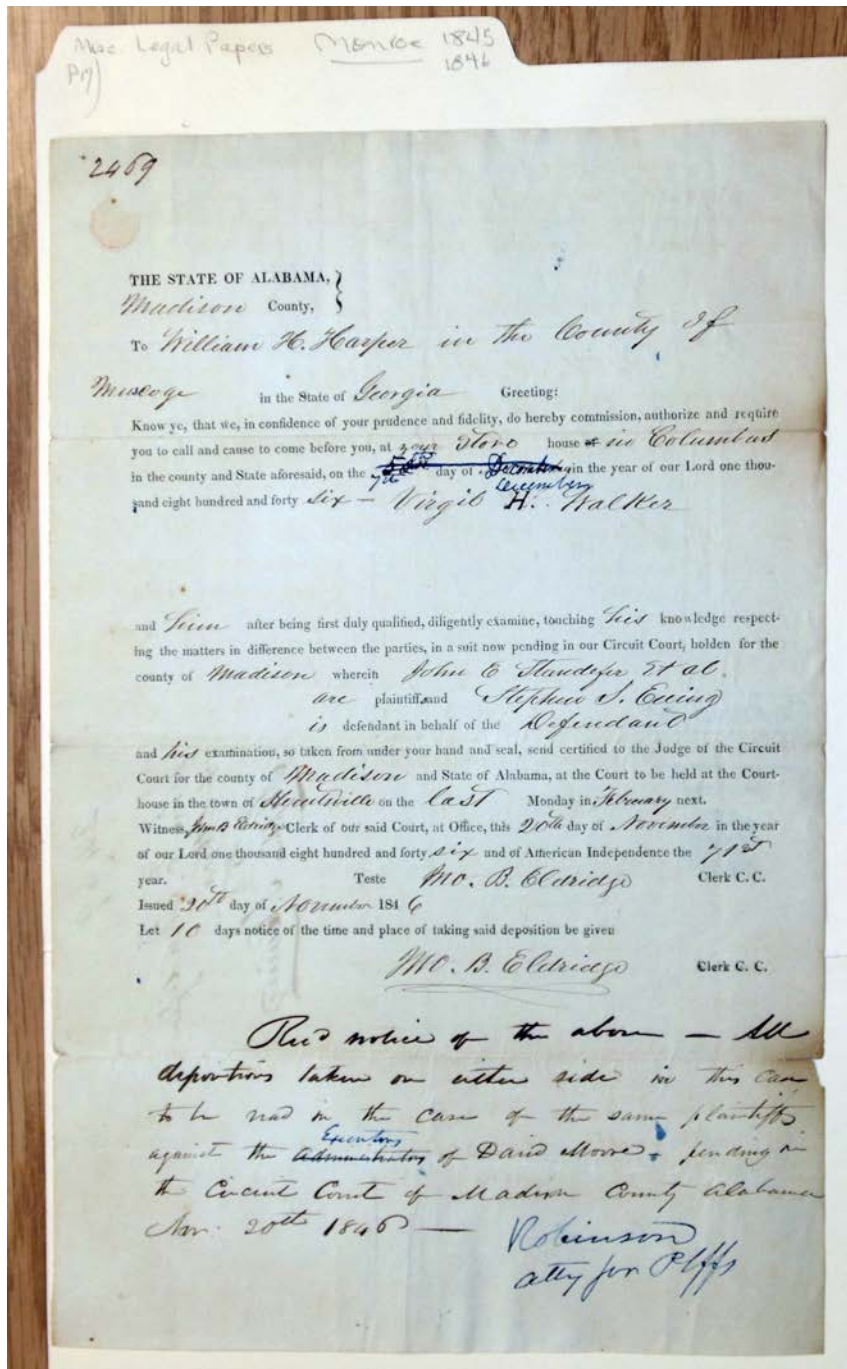 Misc Legal Papers Monroe 1845
1846
2469
THE STATE OF ALABAMA,
Madison County,
To William H. Harper in the County of
Muscoge in the State of Georgia Greeting:
Know ye, that we, in confidence of your prudence and fidelity, do hereby commission, authorize and require
you to call and cause to come before you, at your Store house or in Columbus
in the county and State aforesaid, on the 7th day of December in the year of our Lord one thou-
sand eight hundred and forty six — Virgil H. Walker
and him after being first duly qualified, diligently examine, touching his knowledge respect-
ing the matters in difference between the parties, in a suit now pending in our Circuit Court, holden for the
county of Madison wherein John E Standefer et al.
are plaintiffs and Stephen S. Ewing
is defendant in behalf of the Defendant
and his examination, so taken from under your hand and seal, send certified to the Judge of the Circuit
Court for the county of Madison and State of Alabama, at the Court to be held at the Court-
house in the town of Huntsville on the last Monday in February next.
Witness, Jno. B Eldridge Clerk of our said Court, at Office, this 20th day of November in the year
of our Lord one thousand eight hundred and forty six and of American Independence the 71st
year. Teste Jno. B. Eldridge Clerk C. C.
Issued 20th day of November 1846
Let 10 days notice of the time and place of taking said deposition be given
Jno. B. Eldridge Clerk C. C.
Recd notice of the above — All
depositions taken on either side in this case
to be read in the case of the same plaintiffs
Executors
against the administrators of David Moore. pending in
the Circuit Court of Madison County Alabama
Nov. 20th 1846 — Robinson
atty for Plffs